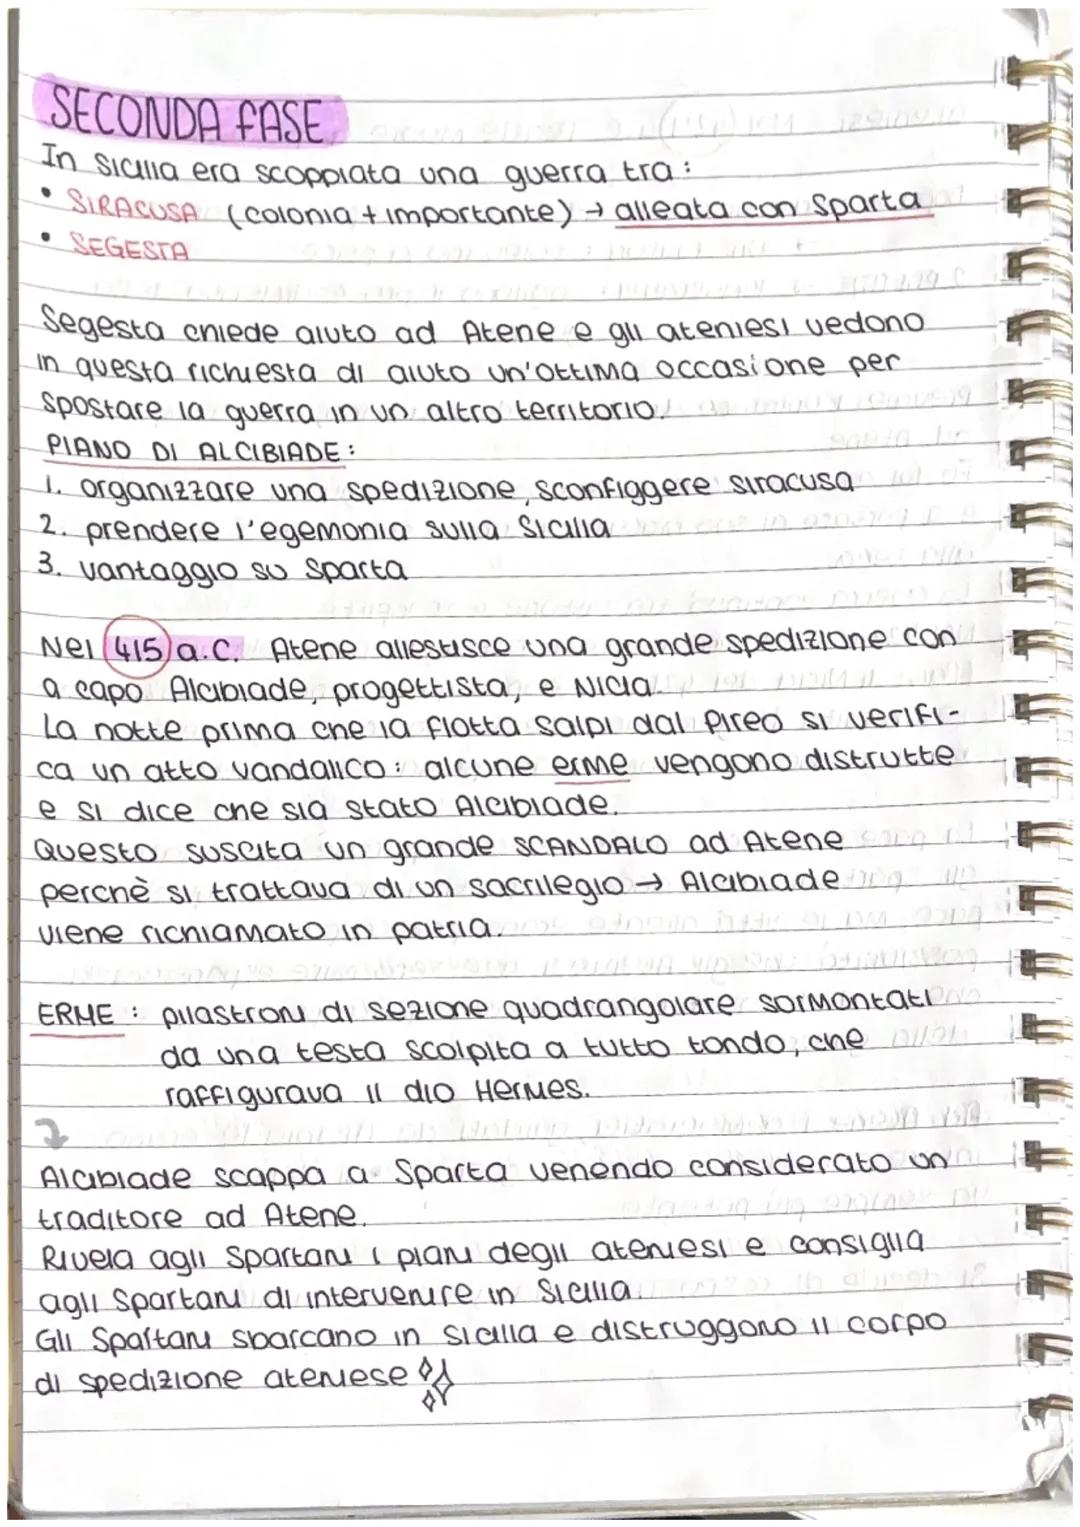 SECONDA FASE
In Sicilia era scoppiata una guerra tra:
• SIRACUSA (colonia + importante) → alleata con Sparta
• SEGESTA
Segesta chiede aiuto ad Atene e gli ateniesi vedono
in questa richiesta di aiuto un'ottima occasione per
spostare la guerra in un altro territorio.
PIANO DI ALCIBIADE:
1. organizzare una spedizione, sconfiggere Siracusa
2. prendere l'egemonia sulla Sicilia
3. vantaggio su Sparta
Nel 415 a.C. Atene allestisce una grande spedizione con
a capo Alcibiade, progettista, e Nicia.
La notte prima che la flotta salpi dal Pireo si verifi-
ca un atto vandalico: alcune erme vengono distrutte
e si dice che sia stato Alcibiade.
Questo suscita un grande SCANDALO ad Atene
perchè si trattava di un sacrilegio → Alcibiade
viene richiamato in patria.
ERME: pilastroni di sezione quadrangolare sormontati
da una testa scolpita a tutto tondo, che
raffigurava il dio Hermes.
Alcibiade scappa a Sparta venendo considerato un
traditore ad Atene.
Rivela agli Spartani i piani degli ateniesi e consiglia
agli Spartani di intervenire in Sicilia.
Gli Spartani sbarcano in Sicilia e distruggono il corpo
di spedizione ateniese